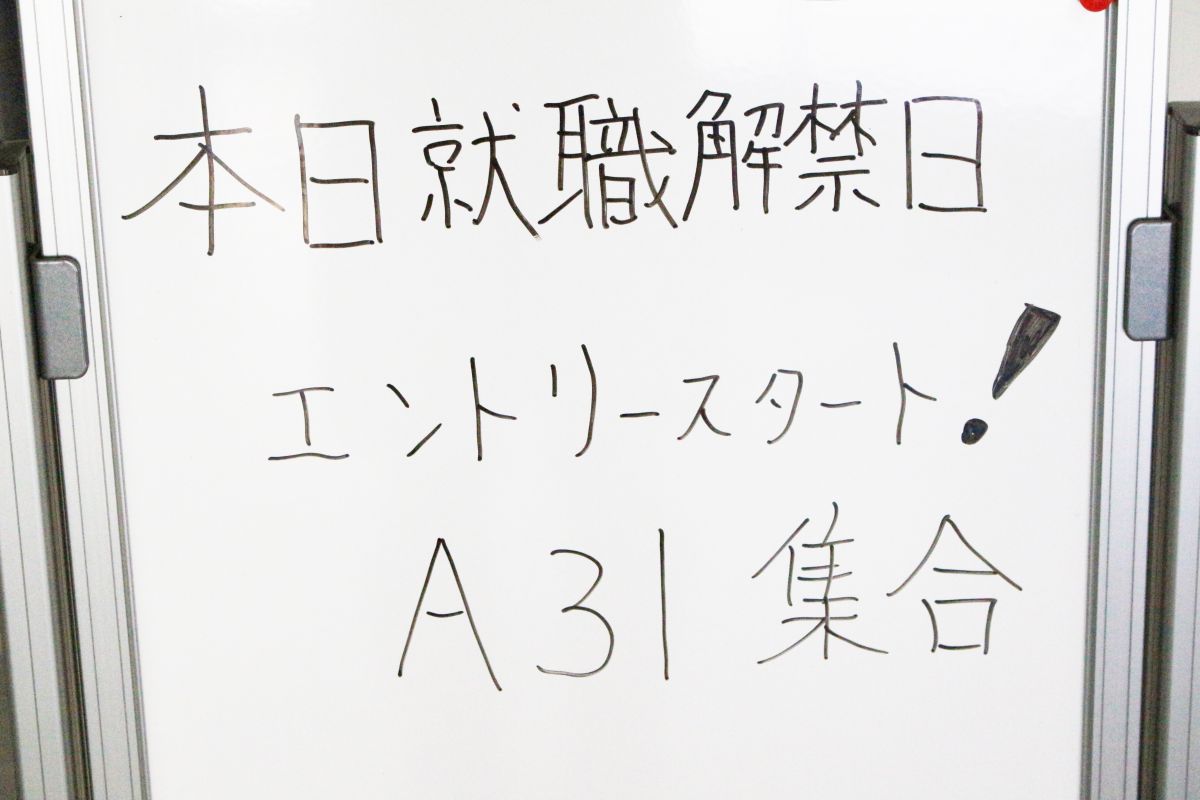 本日就職解禁日
エントリースタート!
A31 集合